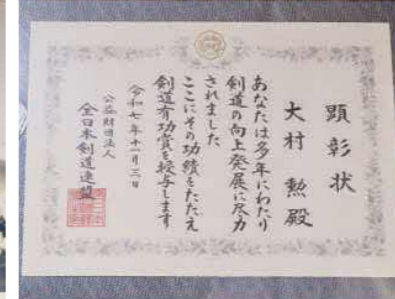 顕彰状
大村勲殿
あなたは多年にわたり
剣道の向上発展に尽力
されました
ここにその功績をたたえ
剣道有功賞を授与します
令和七年十一月三日
公益財団法人
全日本剣道連盟